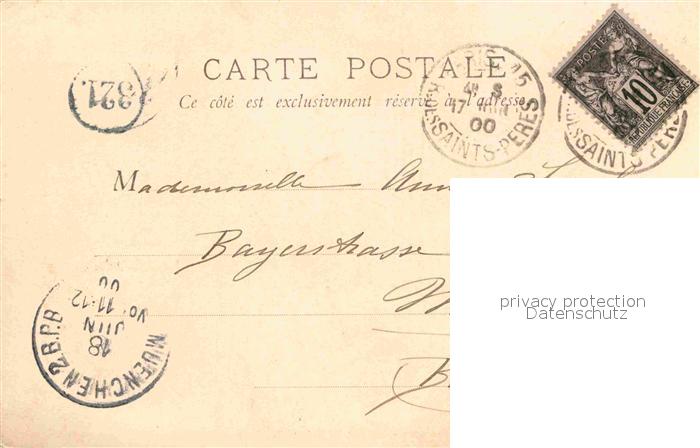 CARTE POSTALE
Ce côté est exclusivement réservé à l'adresse
321.
PARIS 15
R. DES SAINTS-PERES
4E S
17 JUIN
00
POSTES
10
REPUBLIQUE FRANCAISE
R. DES SAINTS-PERES
Mademoiselle
Bayerstrasse
MUENCHEN 2 B.P.B
18
JUN
Vo 11-12
00
privacy protection
Datenschutz